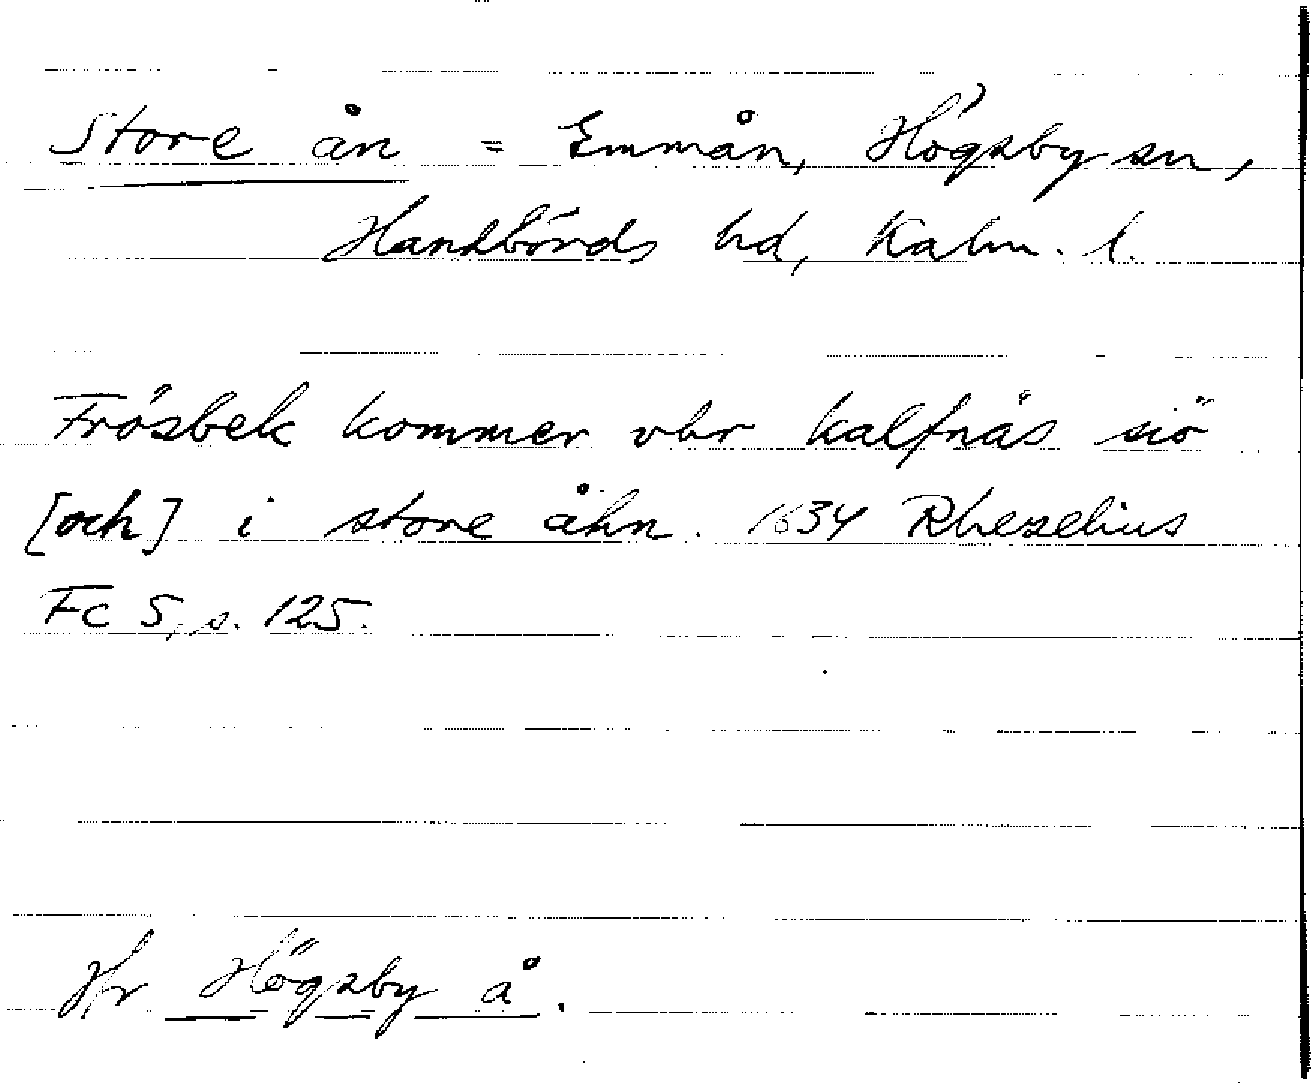 Store ån = Emmån, Högsby sn,
Handbörds hd, Kalm. l.
Frösbek kommer vbr kalfnäs siö
[och] i store åhn. 1634 Rhezelius
Fc 5, s. 125.
Jfr Högsby å.